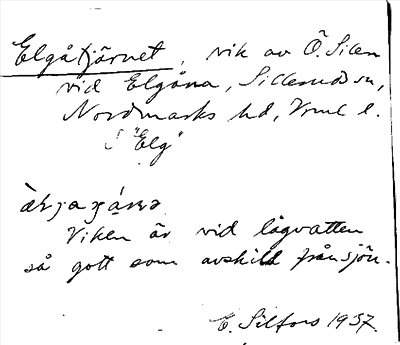 Elgåtjärnet, vik av Ö. Silen
vid Elgåna, Sillerud sn,
Nordmarks hd, Vrml l.
"Elg"
Viken är vid lågvatten
så gott som avskild från sjön.
E. Silfors 1937.